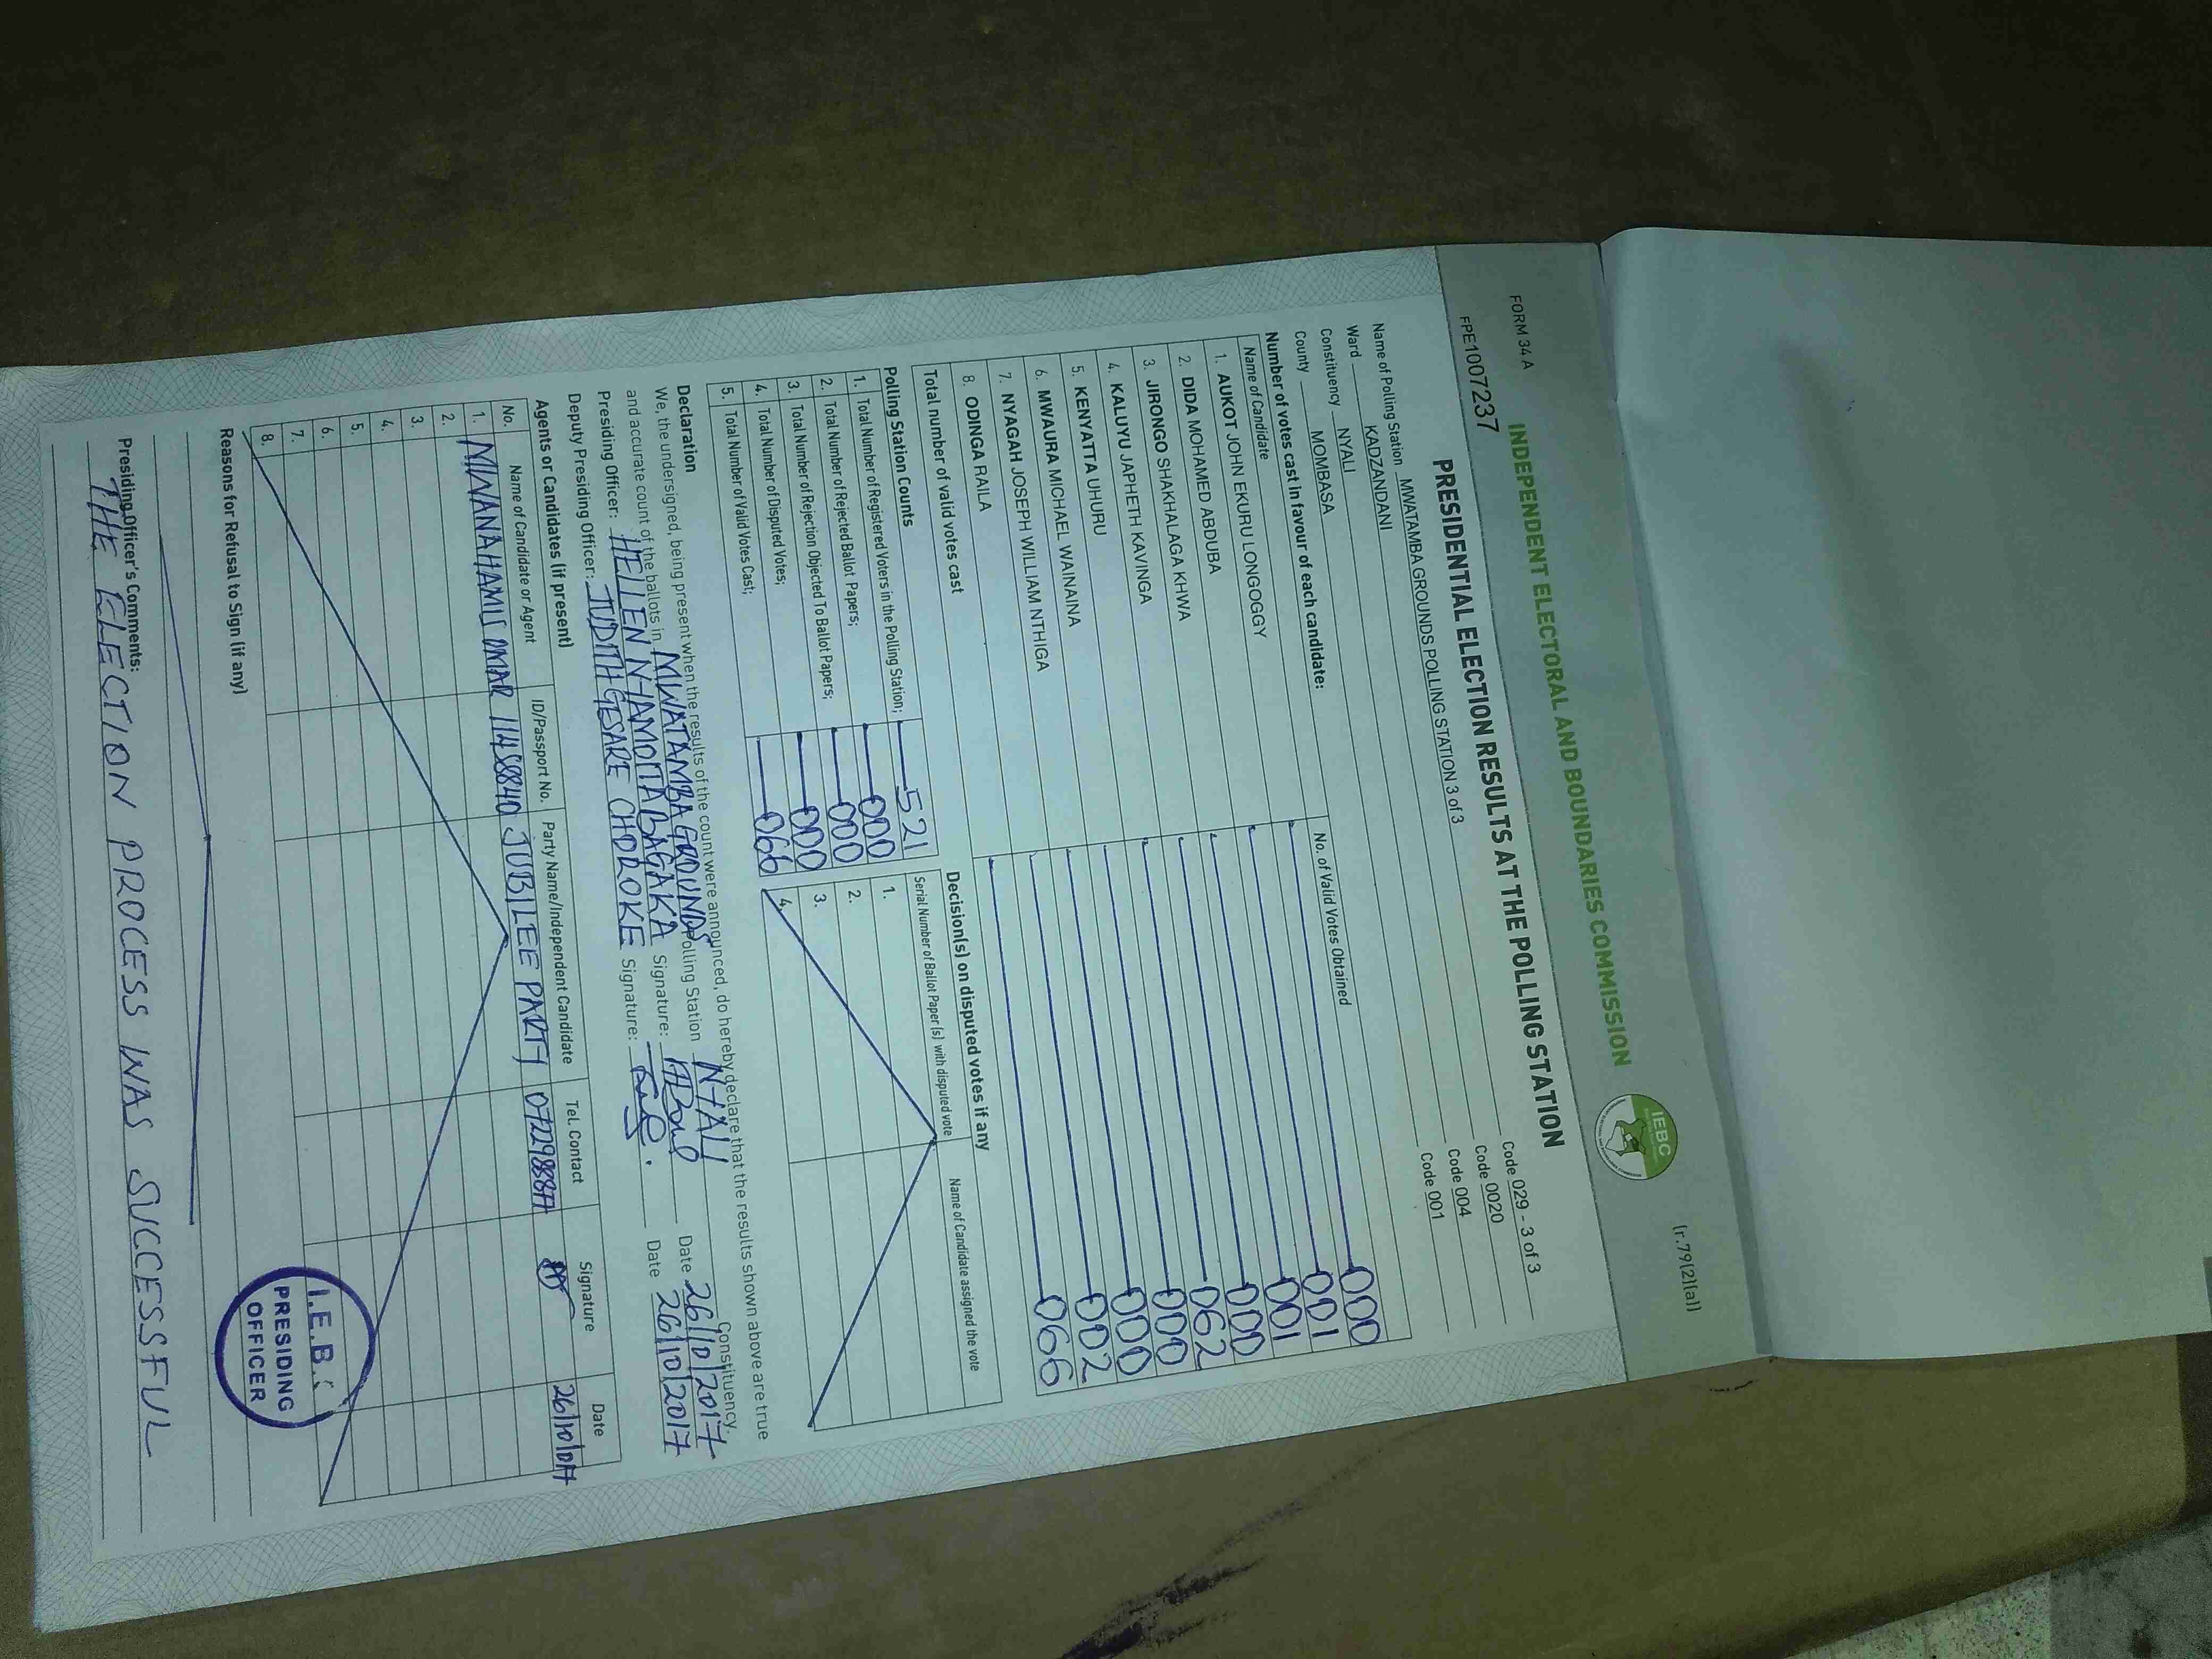 FORM 34 A
(r.79(2)(a))
INDEPENDENT ELECTORAL AND BOUNDARIES COMMISSION
IEBC
FPE1007237
PRESIDENTIAL ELECTION RESULTS AT THE POLLING STATION
Name of Polling Station MWATAMBA GROUNDS POLLING STATION 3 of 3 Code 029 - 3 of 3
Ward KADZANDANI Code 0020
Constituency NYALI Code 004
County MOMBASA Code 001
Number of votes cast in favour of each candidate:
Name of Candidate No. of Valid Votes Obtained
1. AUKOT JOHN EKURU LONGOGGY 000
2. DIDA MOHAMED ABDUBA 001
3. JIRONGO SHAKHALAGA KHWA 001
4. KALUYU JAPHETH KAVINGA 000
5. KENYATTA UHURU 062
6. MWAURA MICHAEL WAINAINA 000
7. NYAGAH JOSEPH WILLIAM NTHIGA 000
8. ODINGA RAILA 002
Total number of valid votes cast 066
Polling Station Counts
1. Total Number of Registered Voters in the Polling Station; 521
2. Total Number of Rejected Ballot Papers; 000
3. Total Number of Rejection Objected To Ballot Papers; 000
4. Total Number of Disputed Votes; 000
5. Total Number of Valid Votes Cast; 066
Decision(s) on disputed votes if any
Serial Number of Ballot Paper (s) with disputed vote Name of Candidate assigned the vote
1.
2.
3.
4.
Declaration
We, the undersigned, being present when the results of the count were announced, do hereby declare that the results shown above are true
and accurate count of the ballots in MWATAMBA GROUNDS Polling Station NYALI Constituency.
Presiding Officer: HELLEN NYAMOITA Signature: Date 26/10/2017
Deputy Presiding Officer: JUDITH GESARE Signature: Date 26/10/2017
Agents or Candidates (if present)
No. Name of Candidate or Agent ID/Passport No. Party Name/Independent Candidate Tel. Contact Signature Date
1. MWANAHAMISI OMAR JUBILEE PARTY
2.
3.
4.
5.
6.
7.
8.
I.E.B.C
PRESIDING
OFFICER
Reasons for Refusal to Sign (if any)
Presiding Officer's Comments:
THE ELECTION PROCESS WAS SUCCESSFUL